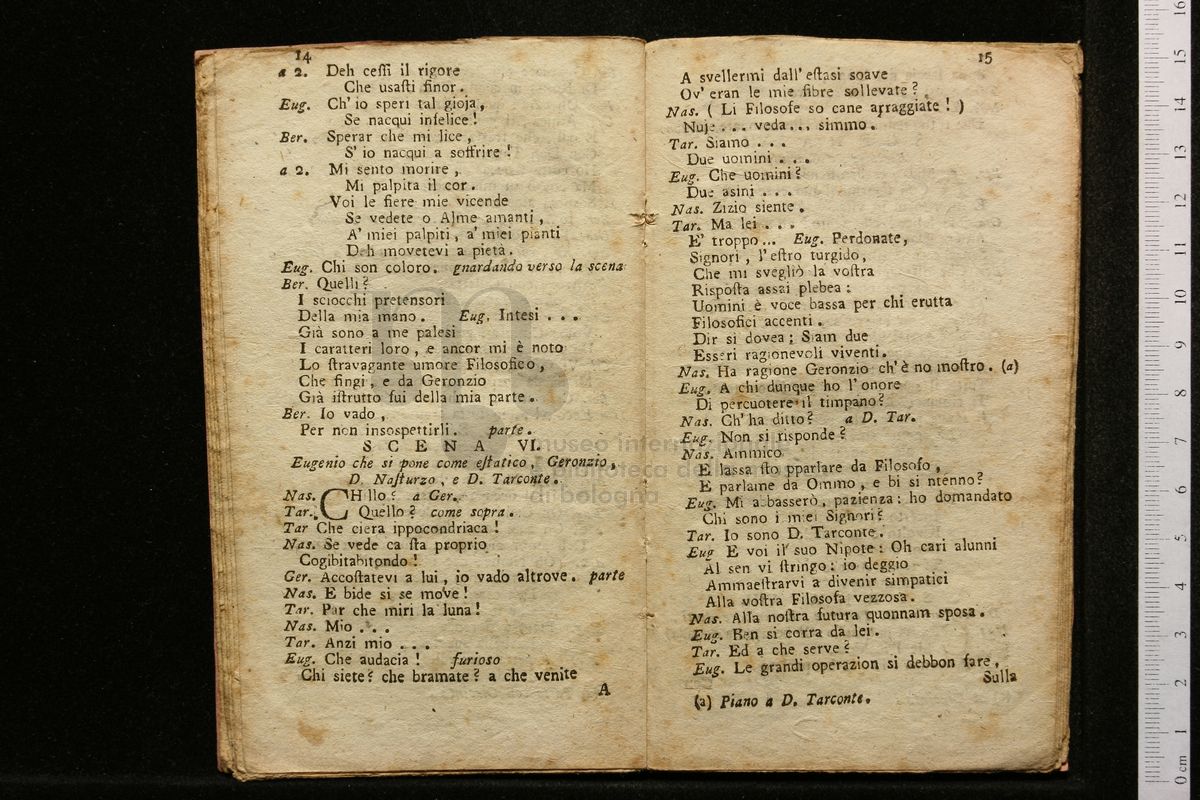 14
a 2. Deh ceſſi il rigore
Che uſaſti finor.
Eug. Ch' io speri tal gioja,
Se nacqui infelice!
Ber. Sperar che mi lice,
S' io nacqui a soffrire!
a 2. Mi sento morire,
Mi palpita il cor.
Voi le fiere mie vicende
Se vedete o Alme amanti,
A' miei palpiti, a' miei pianti
Deh movetevi a pietà.
Eug. Chi son coloro. gnardando verso la scena
Ber. Quelli?
I sciocchi pretensori
Della mia mano. Eug. Intesi...
Già sono a me palesi
I caratteri loro, e ancor mi è noto
Lo ſtravagante umore Filosofico,
Che fingi, e da Geronzio
Già iſtrutto fui della mia parte.
Ber. Io vado,
Per non insospettirli. parte.
SCENA VI.
Eugenio che si pone come eſtatico, Geronzio,
D. Naſturzo, e D. Tarconte.
Nas. CHillo? a Ger.
Tar. Quello? come sopra.
Tar Che ciera ippocondriaca!
Nas. Se vede ca ſta proprio
Cogibitabitondo!
Ger. Accoſtatevi a lui, io vado altrove. parte
Nas. E bide si se move!
Tar. Par che miri la luna!
Nas. Mio...
Tar. Anzi mio...
Eug. Che audacia! furioso
Chi siete? che bramate? a che venite
A
15
A svellermi dall' eſtasi soave
Ov' eran le mie fibre sollevate?
Nas. (Li Filosofe so cane arraggiate!)
Nuje... veda... simmo.
Tar. Siamo...
Due uomini...
Eug. Che uomini?
Due asini...
Nas. Zizio siente.
Tar. Ma lei...
E' troppo... Eug. Perdonate,
Signori, l' eſtro turgido,
Che mi svegliò la voſtra
Risposta assai plebea:
Uomini è voce bassa per chi erutta
Filosofici accenti.
Dir si dovea; Siam due
Esseri ragionevoli viventi.
Nas. Ha ragione Geronzio ch' è no moſtro. (a)
Eug. A chi dunque ho l' onore
Di percuotere il timpano?
Nas. Ch' ha ditto? a D. Tar.
Eug. Non si risponde?
Nas. Ammico
E lassa ſto pparlare da Filosofo,
E parlame da Ommo, e bi si ntenno?
Eug. Mi abbasserò, pazienza: ho domandato
Chi sono i miei Signori?
Tar. Io sono D. Tarconte.
Eug E voi il suo Nipote: Oh cari alunni
Al sen vi ſtringo: io deggio
Ammaeſtrarvi a divenir simpatici
Alla voſtra Filosofa vezzosa.
Nas. Alla noſtra futura quonnam sposa.
Eug. Ben si corra da lei.
Tar. Ed a che serve?
Eug. Le grandi operazion si debbon fare,
Sulla
(a) Piano a D. Tarconte.